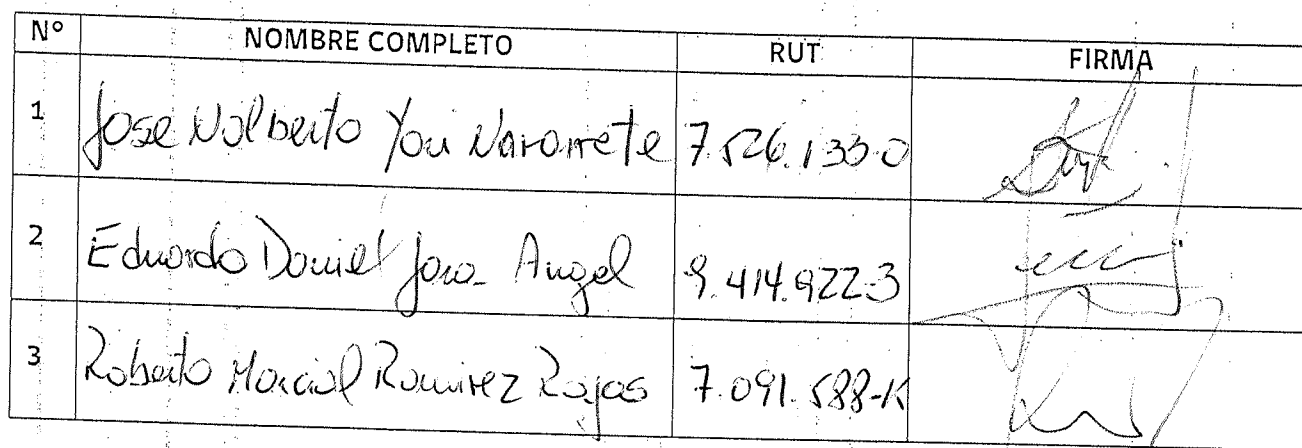 N° NOMBRE COMPLETO RUT FIRMA
1 Jose Nolberto You Navarrete 7.526.133-0
2 Eduardo Daniel Jara Angel 9.414.922-3
3 Roberto Marcial Ramirez Rojas 7.091.588-K